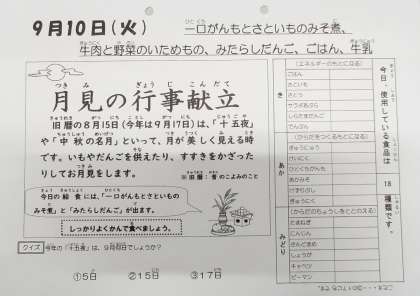 9月10日(火)
一口がんもとさといものみそ煮、
牛肉と野菜のいためもの、みたらしだんご、ごはん、牛乳
月見の行事献立
旧暦の8月15日（今年は9月17日）は、「十五夜」
や「中秋の名月」といって、月が美しく見える時
です。いもやだんごを供えたり、すすきをかざった
りしてお月見をします。
※旧暦：昔のこよみのこと
今日の給食には、「一口がんもとさといもの
みそ煮」と「みたらしだんご」が出ます。
しっかりよくかんで食べましょう。
クイズ 今年の「十五夜」は、9月何日でしょうか？
①5日 ②15日 ③17日
（エネルギーのもとになる）
き
ごはん
さといも
さとう
サラダあぶら
でんぷん
（からだをつくるもとになる）
あか
ぎゅうにゅう
ぎゅうにく
（からだのちょうしをととのえる）
みどり
たまねぎ
にんじん
さんどまめ
しょうが
キャベツ
ピーマン
今日、使用している食品は
18
種類です。